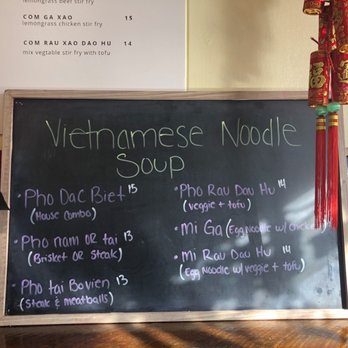 lemongrass beef stir fry
COM GA XAO 15
lemongrass chicken stir fry
COM RAU XAO DAO HU 14
mix vegtable stir fry with tofu
Vietnamese Noodle
Soup
• Pho Dac Biet 15
(House Combo)
• Pho nam OR tai 13
(Brisket OR Steak)
Pho tai Bovien 13
(Steak & meatballs)
• Pho Rau Dau Hu 14
(veggie + tofu)
• Mi Ga (Egg Noodle w/ chicken)
• Mi Rau Dau Hu 14
(Egg Noodle w/ veggie + tofu)